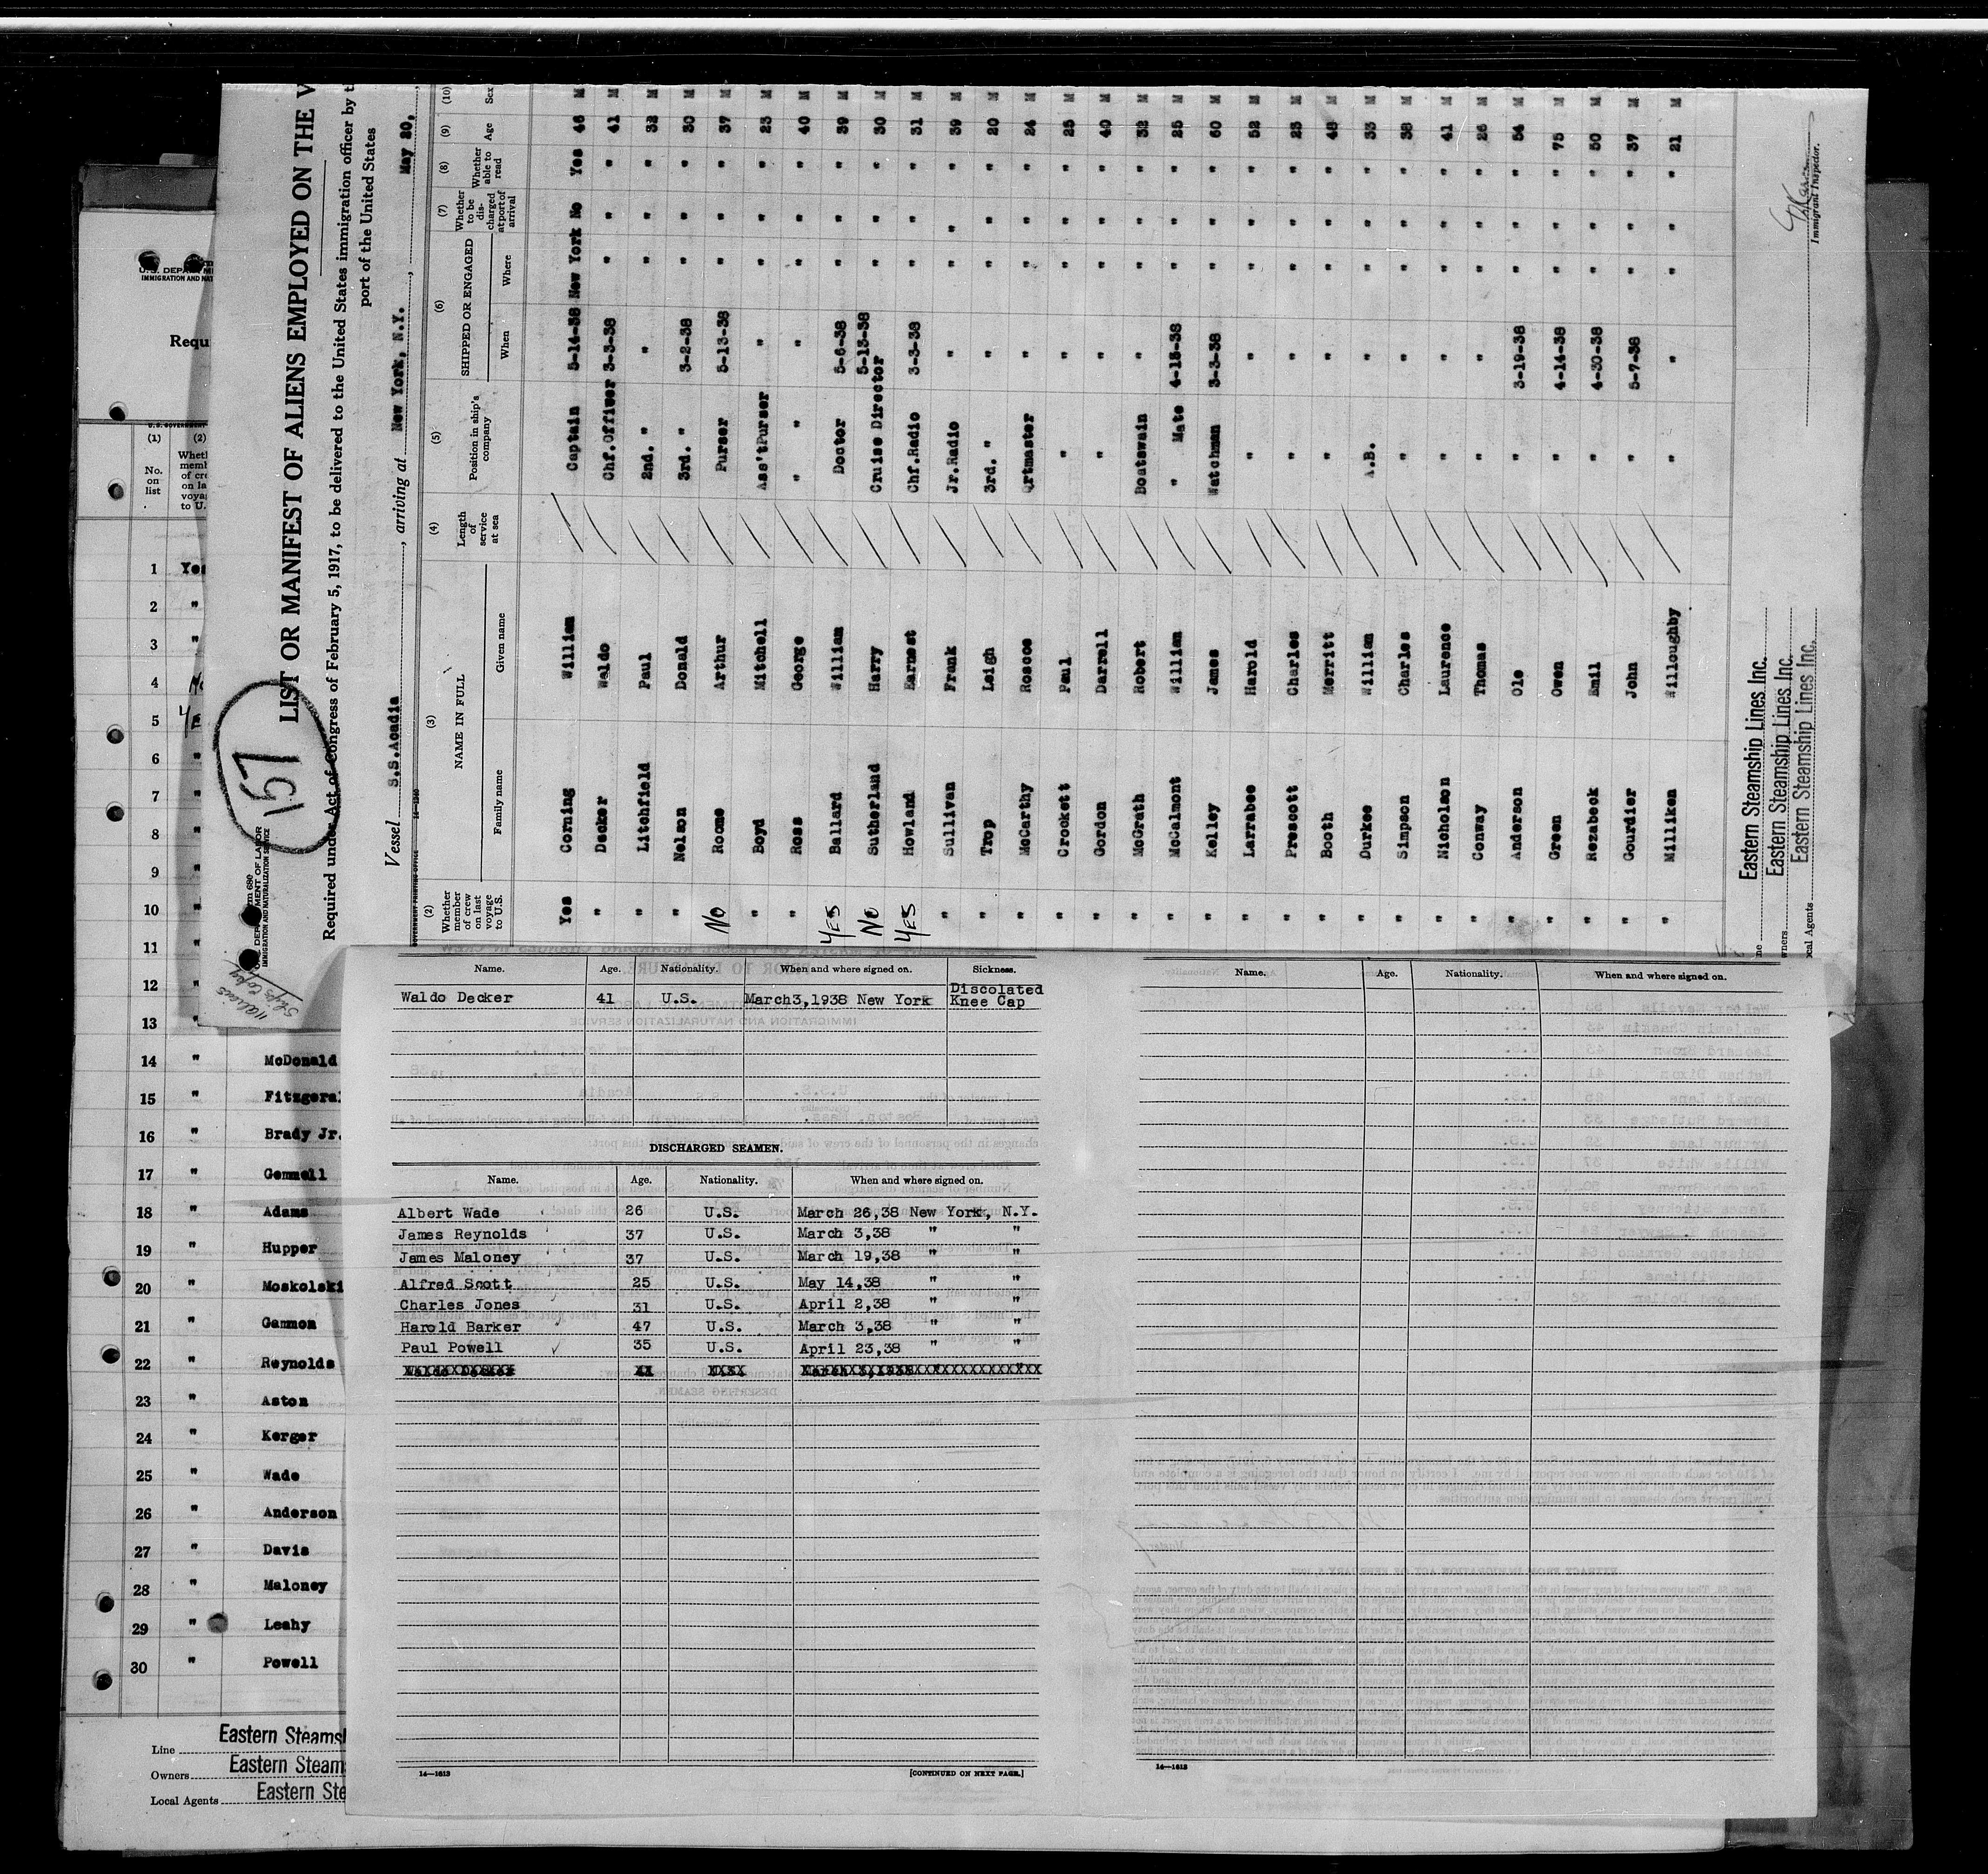 157
LIST OR MANIFEST OF ALIENS EMPLOYED ON THE V
Required under Act of Congress of February 5, 1917, to be delivered to the United States immigration officer by t
port of the United States
Vessel S.S.Acadia, arriving at New York, N.Y., May 20,
(2) (3) (4) (5) (6) (7) (8) (9) (10)
Whether member of crew on last voyage to U.S. NAME IN FULL Family name Given name Length of service at sea Position in ship's company SHIPPED OR ENGAGED When Where Whether to be discharged at port of arrival Whether able to read Age Sex
Yes Corning William Captain 5-14-38 New York No Yes 46 M
" Decker Waldo Chf.Offiwer 3-3-38 " " " 41 M
" Litchfield Paul 2nd. " " " " " 32 M
" Nelson Donald 3rd. " 3-2-38 " " " 30 M
No Roome Arthur Purser 5-13-38 " " " 37 M
" Boyd Mitchell Ass'tPurser " " " " 23 M
" Ross George " " " " " " 40 M
YES Ballard William Doctor 5-6-38 " " " 39 M
No Sutherland Harry Cruise Director 5-13-38 " " " 30 M
YES Howland Earnest Chf.Radio 3-3-38 " " " 31 M
" Sullivan Frank Jr.Radio " " " " 39 M
" Trop Leigh 3rd. " " " " " 20 M
" McCarthy Roscoe Qrtmaster " " " " 24 M
" Crockett Paul " " " " " 25 M
" Gordon Darrell " " " " " 40 M
" McGrath Robert Boatswain " " " " 32 M
" McCalmont William " Mate 4-15-38 " " " 25 M
" Kelley James Watchman 3-3-38 " " " 60 M
" Larrabee Harold " " " " " 52 M
" Prescott Charles " " " " " 23 M
" Booth Merritt " " " " " 48 M
" Durkee William A.B. " " " " 33 M
" Simpson Charles " " " " " 38 M
" Nicholson Laurence " " " " " 41 M
" Conway Thomas " " " " " 26 M
" Anderson Ole " 3-19-38 " " " 54 M
" Green Owen " 4-14-38 " " " 75 M
" Rezabeck Emil " 4-30-38 " " " 50 M
" Gourdier John " 5-7-38 " " " 37 M
" Milliken Willoughby " " " " " 21 M
Eastern Steamship Lines Inc.
Eastern Steamship Lines Inc.
Eastern Steamship Lines Inc.
Immigrant Inspector.
Requ
(1) (2)
No. on list
1 Yes
2 "
3 "
4
5
6 "
7 "
8 "
9 "
10 "
11 "
12 "
13 "
14 " McDonald
15 " Fitzgeral
16 " Brady Jr.
17 " Gemmell
18 " Adams
19 " Hupper
20 " Moskolski
21 " Gammon
22 " Reynolds
23 " Aston
24 " Kerger
25 " Wade
26 " Anderson
27 " Davis
28 " Maloney
29 " Leahy
30 " Powell
Line Eastern Steamsh
Owners Eastern Steam
Local Agents Eastern Ste
Name. Age. Nationality. When and where signed on. Sickness.
Waldo Decker 41 U.S. March3,1938 New York Discolated Knee Cap
DISCHARGED SEAMEN.
Name. Age. Nationality. When and where signed on.
Albert Wade 26 U.S. March 26,38 New York, N.Y.
James Reynolds 37 U.S. March 3,38 " "
James Maloney 37 U.S. March 19,38 " "
Alfred Scott 25 U.S. May 14,38 " "
Charles Jones 31 U.S. April 2,38 " "
Harold Barker 47 U.S. March 3,38 " "
Paul Powell 35 U.S. April 23,38 " "
14—1613 [CONTINUED ON NEXT PAGE.]
Name. Age. Nationality. When and where signed on.
14—1613